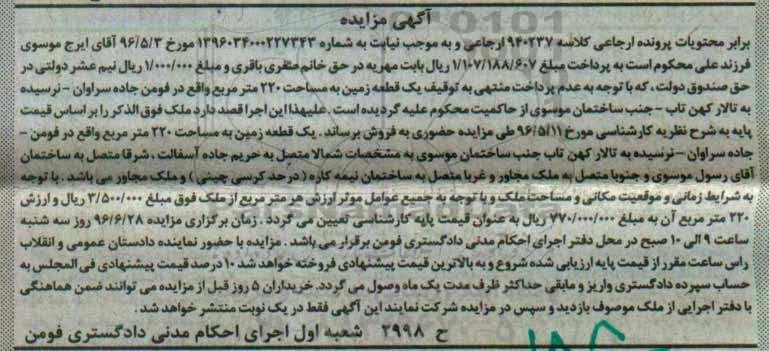 آگهی مزایده
برابر محتویات پرونده ارجاعی کلاسه ۹۴۰۲۳۷ ارجاعی و به موجب نیابت به شماره ۱۳۹۶۰۳۴۰۰۰۲۲۷۳۴۳ مورخ ۹۶/۵/۳ آقای ایرج موسوی
فرزند علی محکوم است به پرداخت مبلغ ۱/۱۰۷/۱۸۸/۶۰۷ ریال بابت مهریه در حق خانم صغری باقری و مبلغ ۱/۰۰۰/۰۰۰ ریال نیم عشر دولتی در
حق صندوق دولت، که با توجه به عدم پرداخت منتهی به توقیف یک قطعه زمین به مساحت ۲۲۰ متر مربع واقع در فومن جاده سراوان - نرسیده
به تالار کهن تاب - جنب ساختمان موسوی از حاکمیت محکوم علیه گردیده است. علیهذا این اجرا قصد دارد ملک فوق الذکر را بر اساس قیمت
پایه به شرح نظریه کارشناسی مورخ ۹۶/۵/۱۱ طی مزایده حضوری به فروش برساند. یک قطعه زمین به مساحت ۲۲۰ متر مربع واقع در فومن -
جاده سراوان - نرسیده به تالار کهن تاب جنب ساختمان موسوی به مشخصات شمالا متصل به حریم جاده آسفالت، شرقا متصل به ساختمان
آقای رسول موسوی و جنوبا متصل به ملک مجاور و غربا متصل به ساختمان نیمه کاره (در حد کرسی چینی) و ملک مجاور می باشد. با توجه
به شرایط زمانی و موقعیت مکانی و مساحت ملک و با توجه به جمیع عوامل موثر ارزش هر متر مربع از ملک فوق مبلغ ۳/۵۰۰/۰۰۰ ریال و ارزش
۲۲۰ متر مربع آن به مبلغ ۷۷۰/۰۰۰/۰۰۰ ریال به عنوان قیمت پایه کارشناسی تعیین می گردد. زمان برگزاری مزایده ۹۶/۶/۲۸ روز سه شنبه
ساعت ۹ الی ۱۰ صبح در محل دفتر اجرای احکام مدنی دادگستری فومن برقرار می باشد. مزایده با حضور نماینده دادستان عمومی و انقلاب
راس ساعت مقرر از قیمت پایه ارزیابی شده شروع و به بالاترین قیمت پیشنهادی فروخته خواهد شد ۱۰ درصد قیمت پیشنهادی فی المجلس به
حساب سپرده دادگستری واریز و مابقی حداکثر ظرف مدت یک ماه وصول می گردد. خریداران ۵ روز قبل از مزایده می توانند ضمن هماهنگی
با دفتر اجرایی از ملک موصوف بازدید و سپس در مزایده شرکت نمایند این آگهی فقط در یک نوبت منتشر خواهد شد.
ح ۲۹۹۸ شعبه اول اجرای احکام مدنی دادگستری فومن